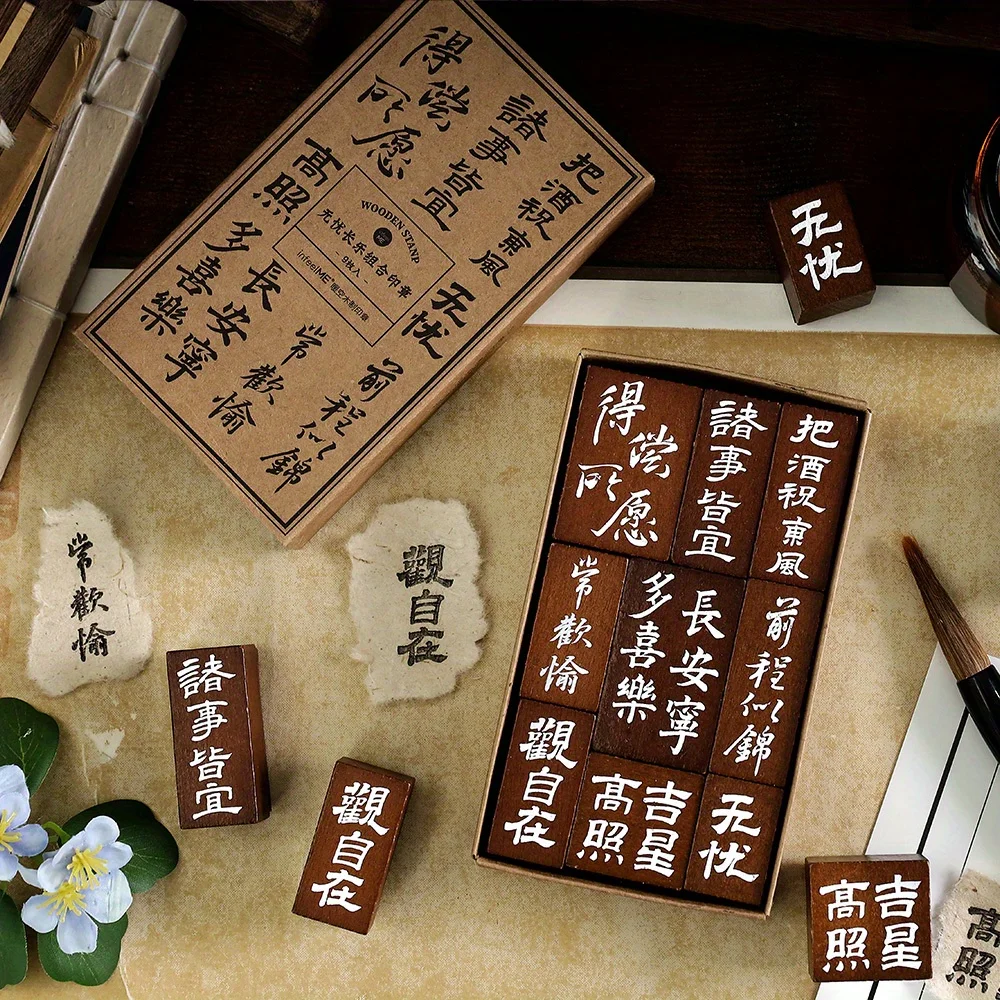 得偿
所愿
諸事皆宜
把酒祝東風
高照
WOODEN STANP
无忧长乐组合印章
- 9枚入 -
infeelME 暖空木制印章
无忧
長安寧
多喜樂
常歡愉
前程似錦
无忧
得偿
所愿
諸事皆宜
把酒祝東風
常歡愉
長安寧
多喜樂
前程似錦
觀自在
吉星
高照
无忧
常歡愉
觀自在
諸事皆宜
觀自在
吉星
高照
高照